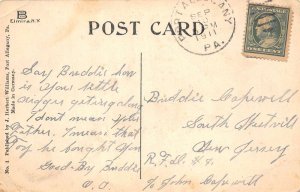 B
Elmira N.Y.
POST CARD
PORT ALLEGANY
SEP
M
1911
PA.
ONE CENT
No. 4 Published by J. Herbert Williams, Port Allegany, Pa.
Made in Germany.
Say Buddie how
is your little
digger getting along
I don't mean your
Father. I mean that
you he bought
Good-By Buddie
Buddie Copewell
South
New Jersey
R.F.D. #2
℅ John Copewell